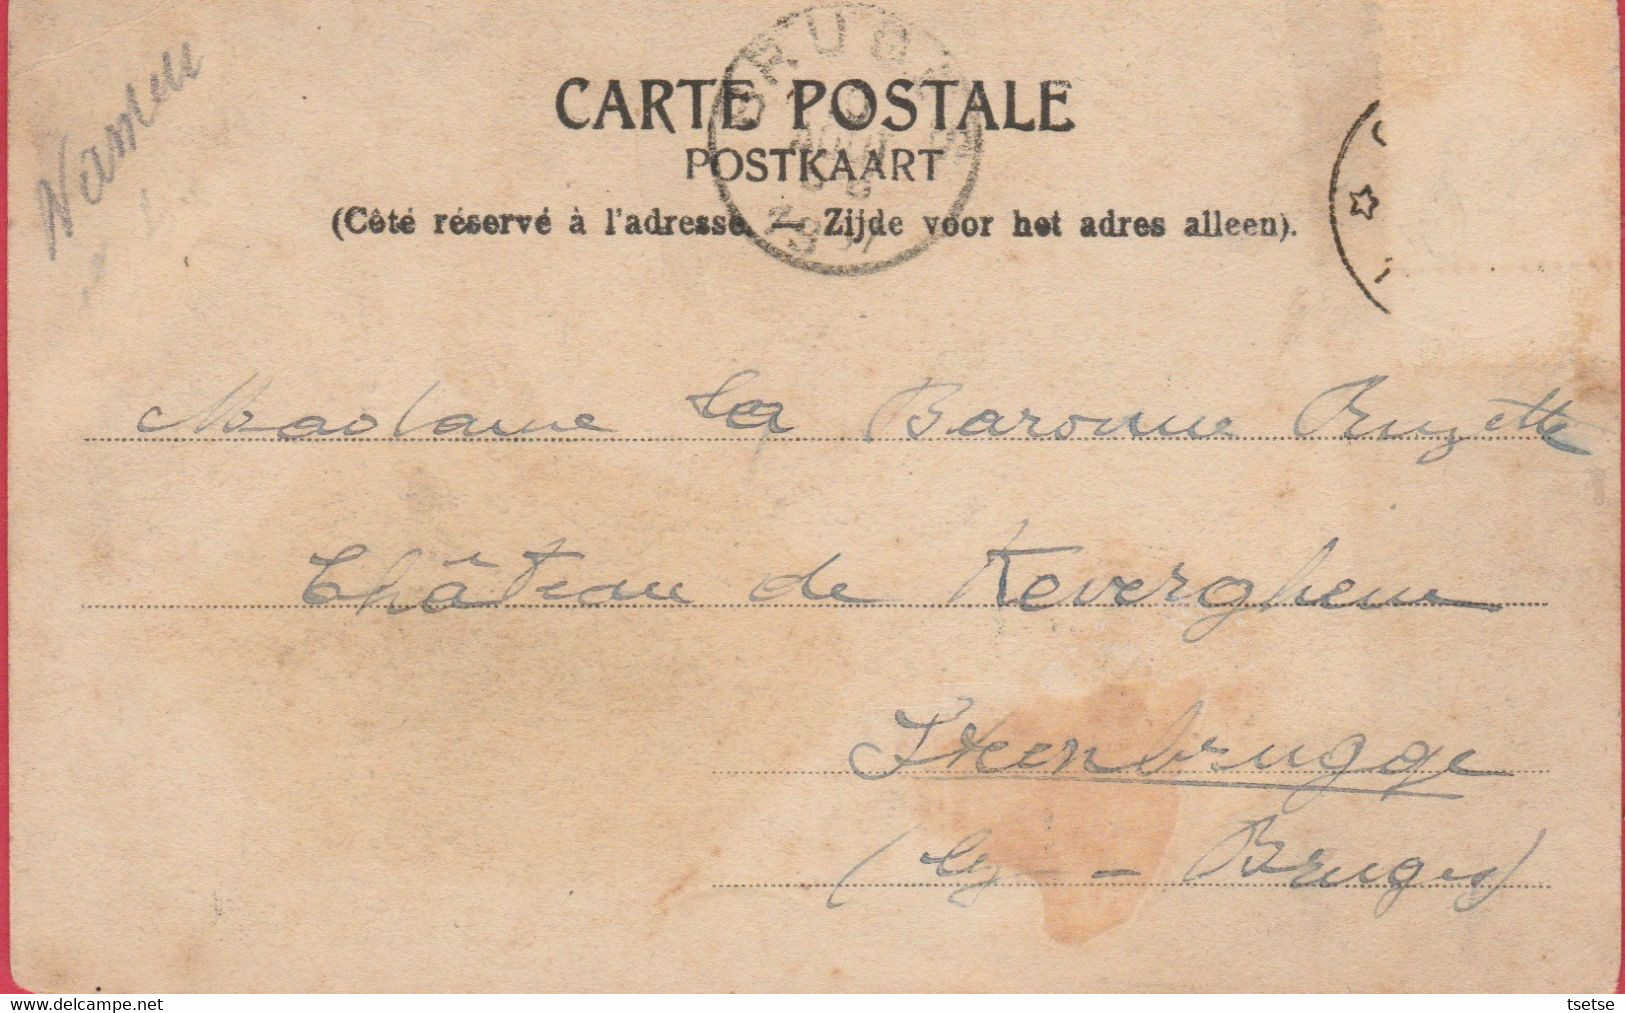 Namur
BRUGES
CARTE POSTALE
POSTKAART
(Côté réservé à l'adresse. — Zijde voor het adres alleen).
Madame la Baronne Ruzette
Château de Keverghem
Steenbrugge
(lez - Bruges)
www.delcampe.net
tsetse